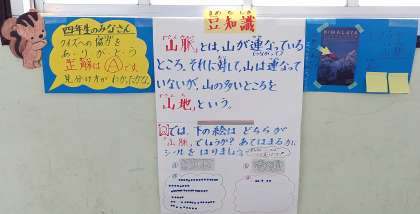 四年生のみなさん
クイズへの協力を
ありがとう
正解はⒶです。
見分け方がわかったかな。
豆知識
「山脈」とは、山が連なっている
ところ。それに対して、山は連なって
いないが、山の多いところを
「山地」という。
では、下の絵は どちらが
「山脈」でしょうか？あてはまる方に
シールをはりましょう
HIMALAYA